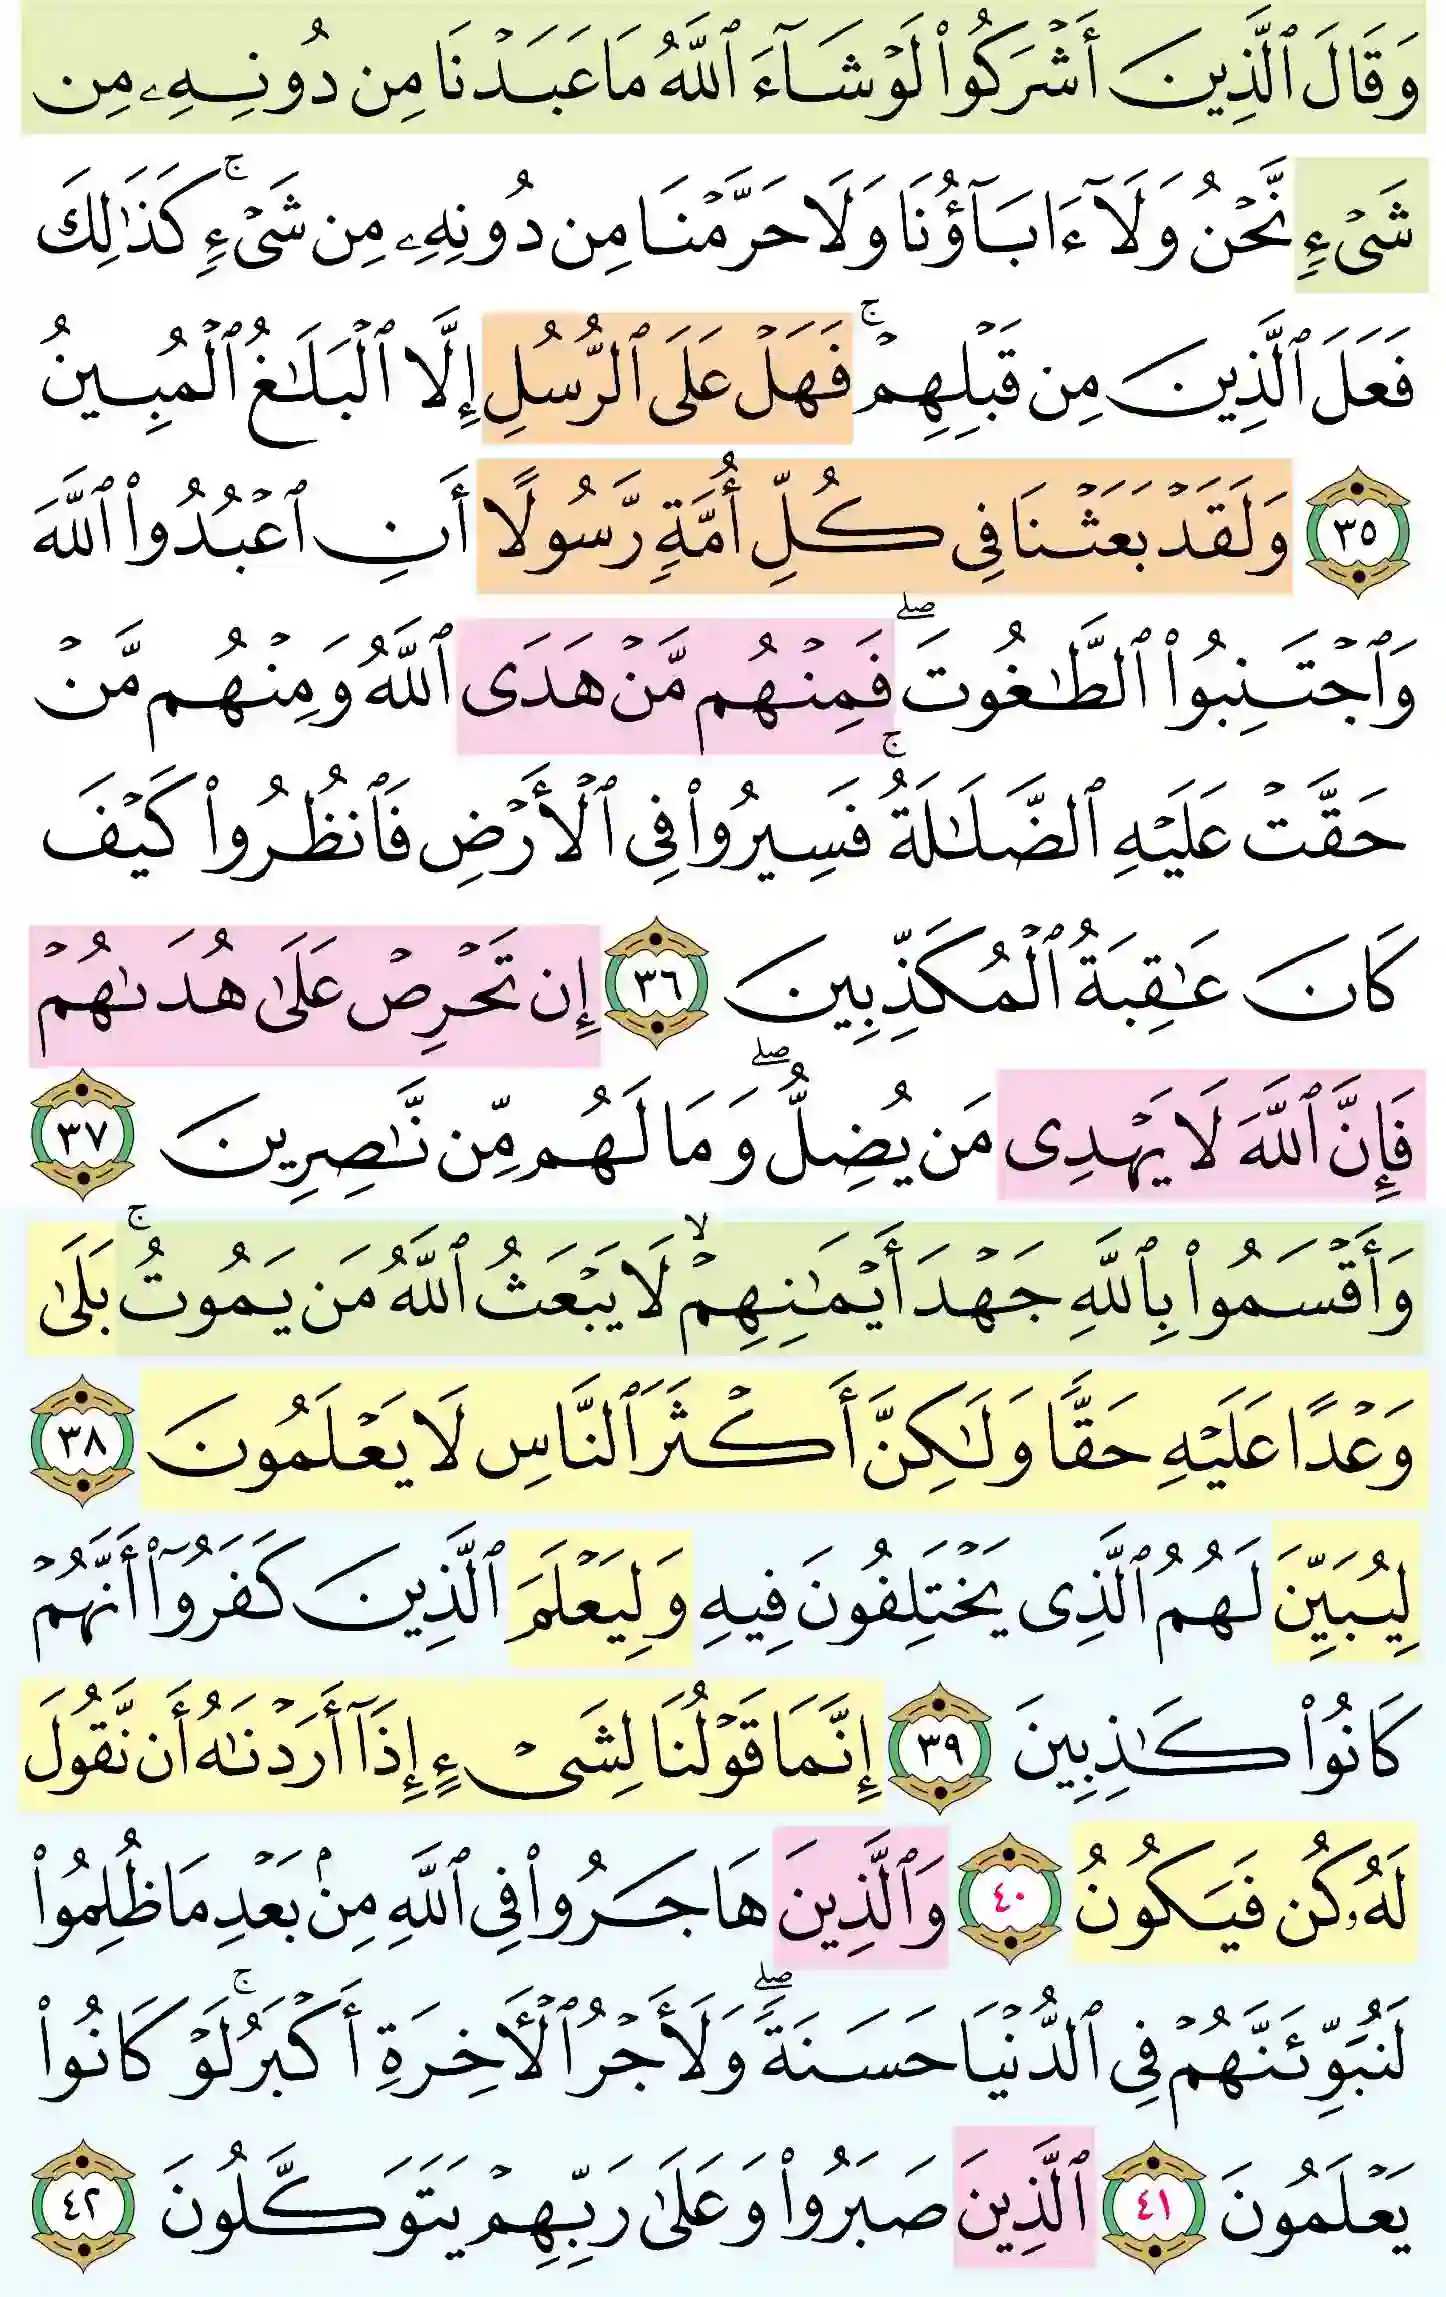 وَقَالَ ٱلَّذِينَ أَشۡرَكُواْ لَوۡ شَآءَ ٱللَّهُ مَا عَبَدۡنَا مِن دُونِهِۦ مِن
شَىۡءٖ نَّحۡنُ وَلَآ ءَابَآؤُنَا وَلَا حَرَّمۡنَا مِن دُونِهِۦ مِن شَىۡءٖۚ كَذَٰلِكَ
فَعَلَ ٱلَّذِينَ مِن قَبۡلِهِمۡۚ فَهَلۡ عَلَى ٱلرُّسُلِ إِلَّا ٱلۡبَلَٰغُ ٱلۡمُبِينُ
٣٥ وَلَقَدۡ بَعَثۡنَا فِى كُلِّ أُمَّةٖ رَّسُولًا أَنِ ٱعۡبُدُواْ ٱللَّهَ
وَٱجۡتَنِبُواْ ٱلطَّٰغُوتَۖ فَمِنۡهُم مَّنۡ هَدَى ٱللَّهُ وَمِنۡهُم مَّنۡ
حَقَّتۡ عَلَيۡهِ ٱلضَّلَٰلَةُۚ فَسِيرُواْ فِى ٱلۡأَرۡضِ فَٱنظُرُواْ كَيۡفَ
كَانَ عَٰقِبَةُ ٱلۡمُكَذِّبِينَ ٣٦ إِن تَحۡرِصۡ عَلَىٰ هُدَىٰهُمۡ
فَإِنَّ ٱللَّهَ لَا يَهۡدِى مَن يُضِلُّۖ وَمَا لَهُم مِّن نَّٰصِرِينَ ٣٧
وَأَقۡسَمُواْ بِٱللَّهِ جَهۡدَ أَيۡمَٰنِهِمۡۙ لَا يَبۡعَثُ ٱللَّهُ مَن يَمُوتُۚ بَلَىٰ
وَعۡدًا عَلَيۡهِ حَقّٗا وَلَٰكِنَّ أَكۡثَرَ ٱلنَّاسِ لَا يَعۡلَمُونَ ٣٨
لِيُبَيِّنَ لَهُمُ ٱلَّذِى يَخۡتَلِفُونَ فِيهِ وَلِيَعۡلَمَ ٱلَّذِينَ كَفَرُوٓاْ أَنَّهُمۡ
كَانُواْ كَٰذِبِينَ ٣٩ إِنَّمَا قَوۡلُنَا لِشَىۡءٍ إِذَآ أَرَدۡنَٰهُ أَن نَّقُولَ
لَهُۥ كُن فَيَكُونُ ٤٠ وَٱلَّذِينَ هَاجَرُواْ فِى ٱللَّهِ مِنۢ بَعۡدِ مَا ظُلِمُواْ
لَنُبَوِّئَنَّهُمۡ فِى ٱلدُّنۡيَا حَسَنَةٗۖ وَلَأَجۡرُ ٱلۡأَخِرَةِ أَكۡبَرُۚ لَوۡ كَانُواْ
يَعۡلَمُونَ ٤١ ٱلَّذِينَ صَبَرُواْ وَعَلَىٰ رَبِّهِمۡ يَتَوَكَّلُونَ ٤٢